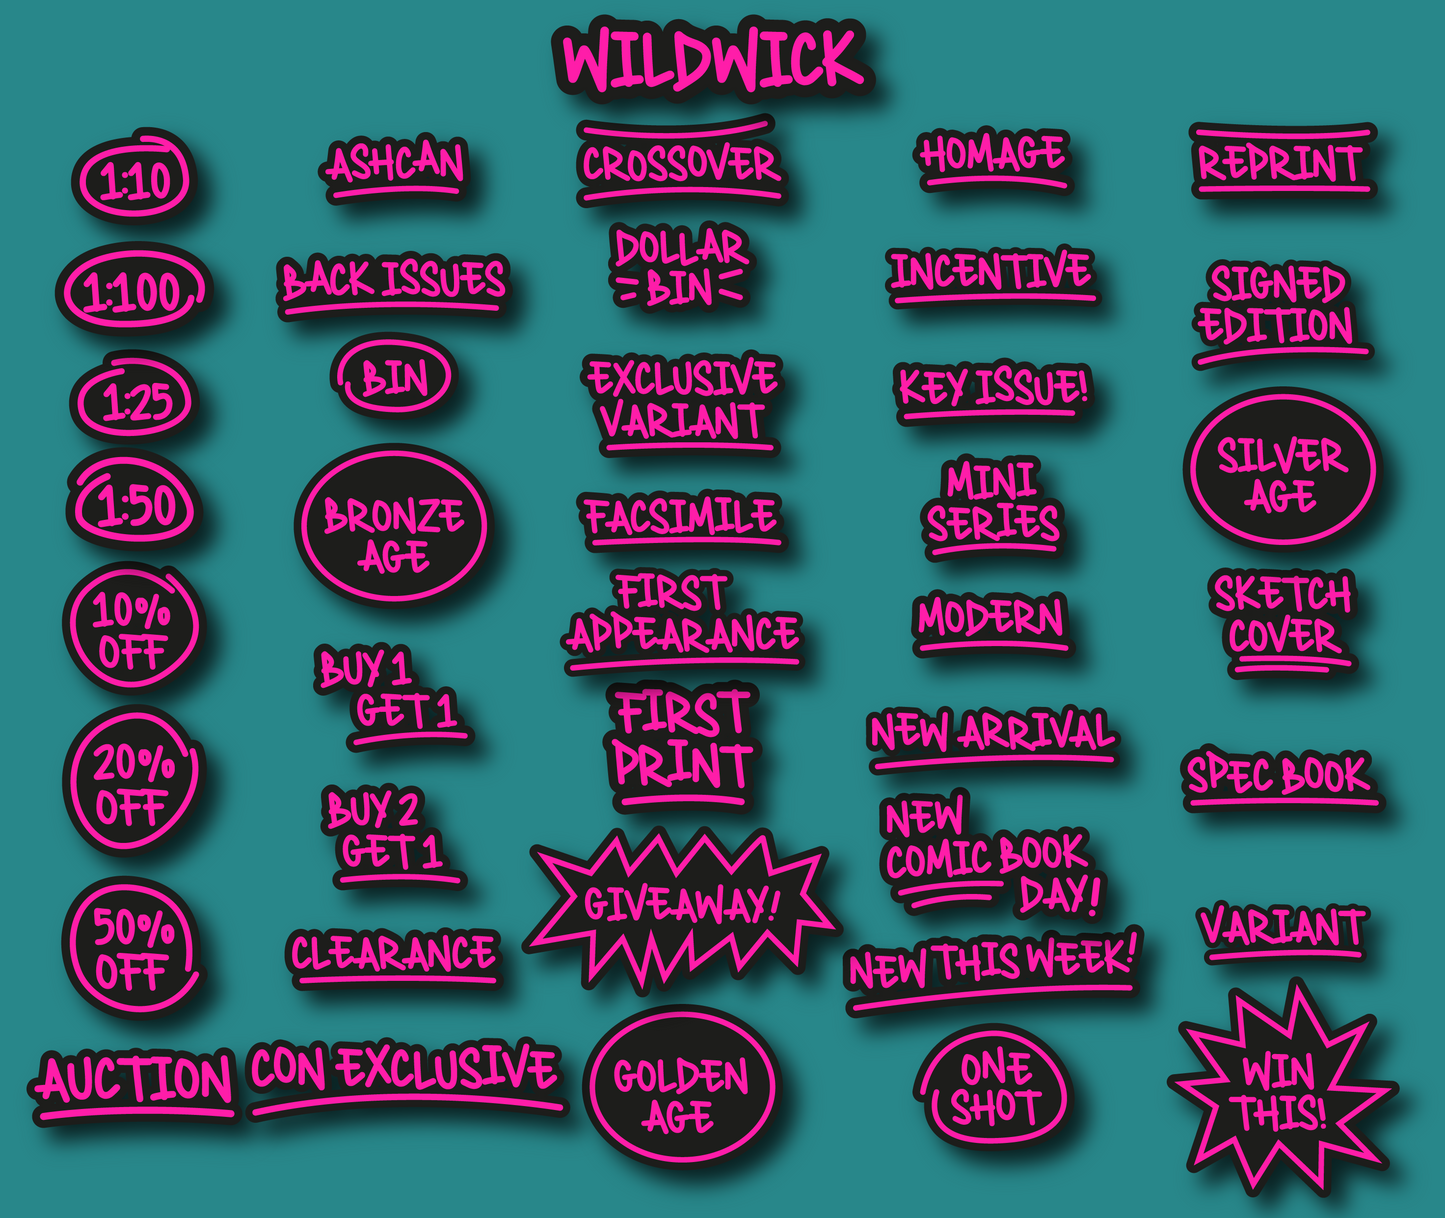 WILDWICK
1:10
1:100
1:25
1:50
10%
OFF
20%
OFF
50%
OFF
AUCTION
ASHCAN
BACK ISSUES
BIN
BRONZE
AGE
BUY 1
GET 1
BUY 2
GET 1
CLEARANCE
CON EXCLUSIVE
CROSSOVER
DOLLAR
BIN
EXCLUSIVE
VARIANT
FACSIMILE
FIRST
APPEARANCE
FIRST
PRINT
GIVEAWAY!
GOLDEN
AGE
HOMAGE
INCENTIVE
KEY ISSUE!
MINI
SERIES
MODERN
NEW ARRIVAL
NEW
COMIC BOOK
DAY!
NEW THIS WEEK!
ONE
SHOT
REPRINT
SIGNED
EDITION
SILVER
AGE
SKETCH
COVER
SPEC BOOK
VARIANT
WIN
THIS!